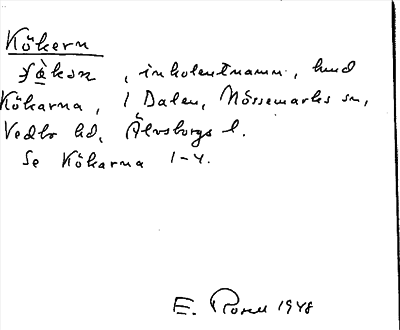 Kökern
, inkolentnamn, hmd
Kökarna, 1 Dalen, Nössemarks sn,
Vedbo hd, Älvsborgs l.
Se Kökarna 1-4.
E. Rosell 1948